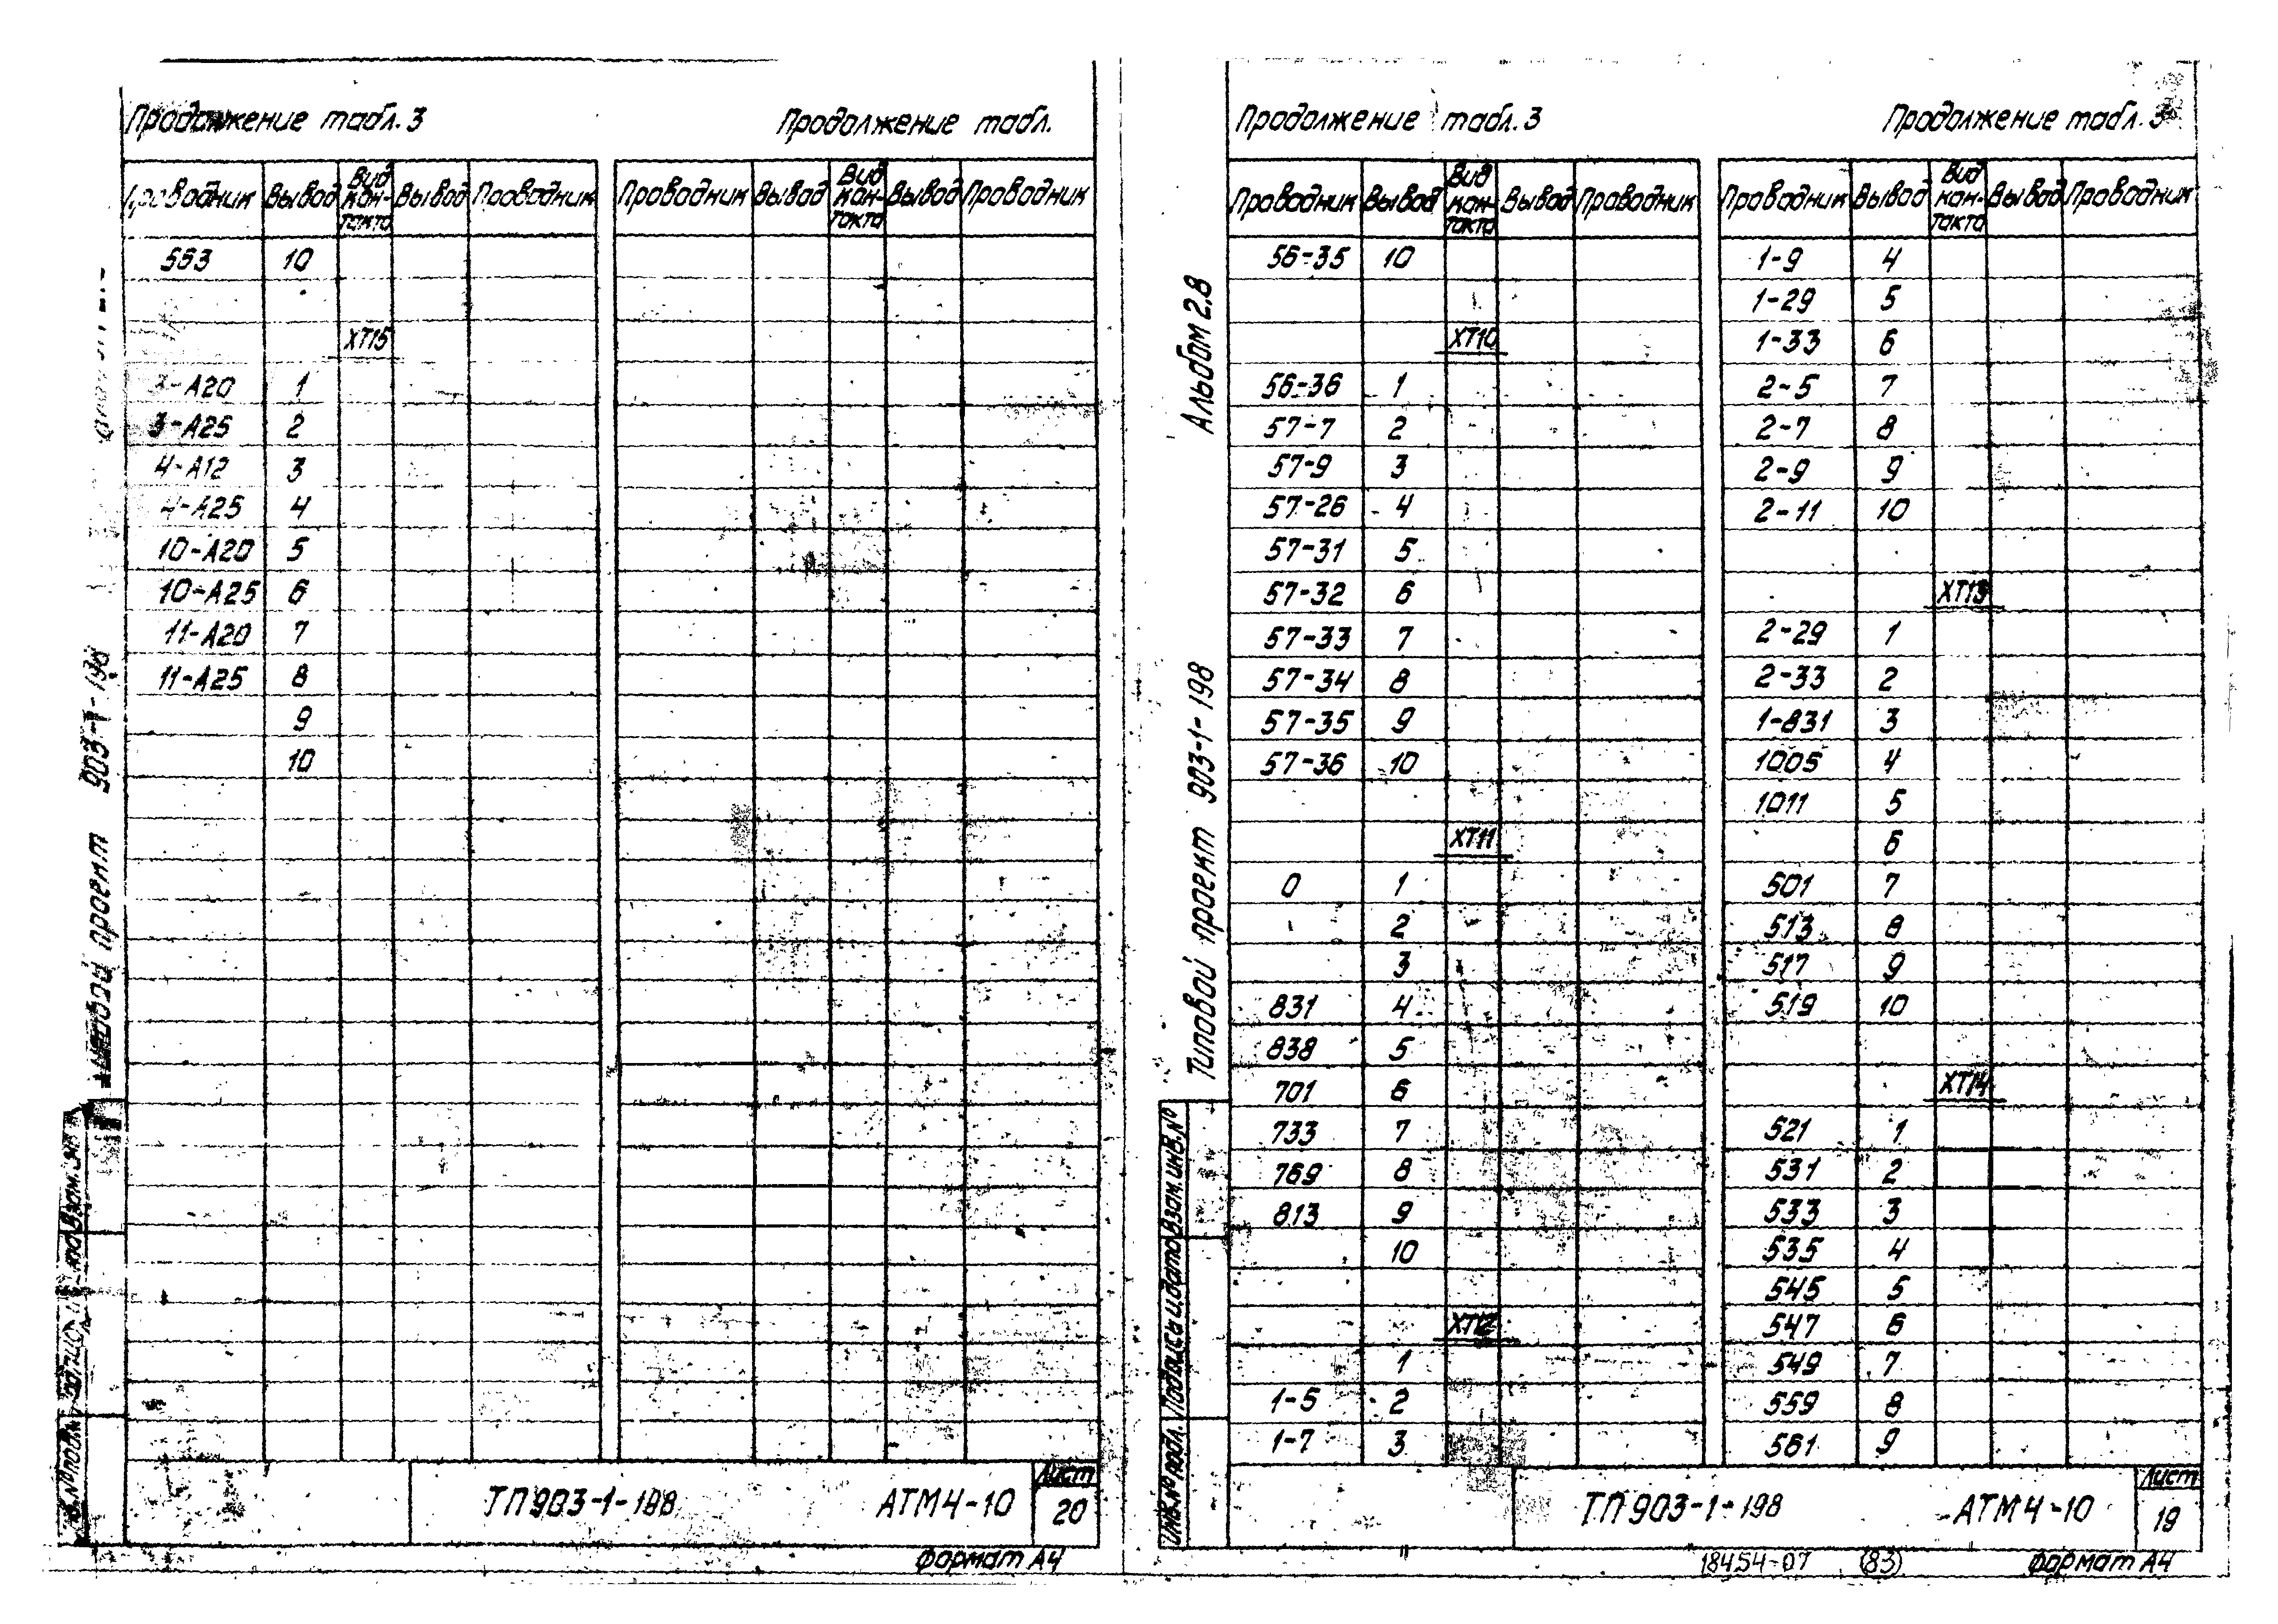 Продолжение табл. 3
Продолжение табл.
Проводник Вывод Вид кон-такта Вывод Проводник
Проводник Вывод Вид кон-такта Вывод Проводник
563 10
XT15
3-А20 1
3-А25 2
4-А12 3
4-А25 4
10-А20 5
10-А25 6
11-А20 7
11-А25 8
9
10
903-1-198
проект
ТП 903-1-198 АТМ4-10
Лист
20
Формат А4
Продолжение табл. 3
Продолжение табл. 3
Проводник Вывод Вид кон-такта Вывод Проводник
56-35 10
XT10
56-36 1
57-7 2
57-9 3
57-26 4
57-31 5
57-32 6
57-33 7
57-34 8
57-35 9
57-36 10
XT11
0 1
2
3
831 4
838 5
701 6
733 7
769 8
813 9
10
XT12
1
1-5 2
1-7 3
Проводник Вывод Вид кон-такта Вывод Проводник
1-9 4
1-29 5
1-33 6
2-5 7
2-7 8
2-9 9
2-11 10
XT13
2-29 1
2-33 2
1-831 3
1005 4
1011 5
6
501 7
513 8
517 9
519 10
XT14
521 1
531 2
533 3
535 4
545 5
547 6
549 7
559 8
561 9
Альбом 2.8
Типовой проект 903-1-198
Инв. № подл. Подпись и дата Взам. инв. №
ТП 903-1-198 АТМ4-10
Лист
19
18454-07 (83) Формат А4